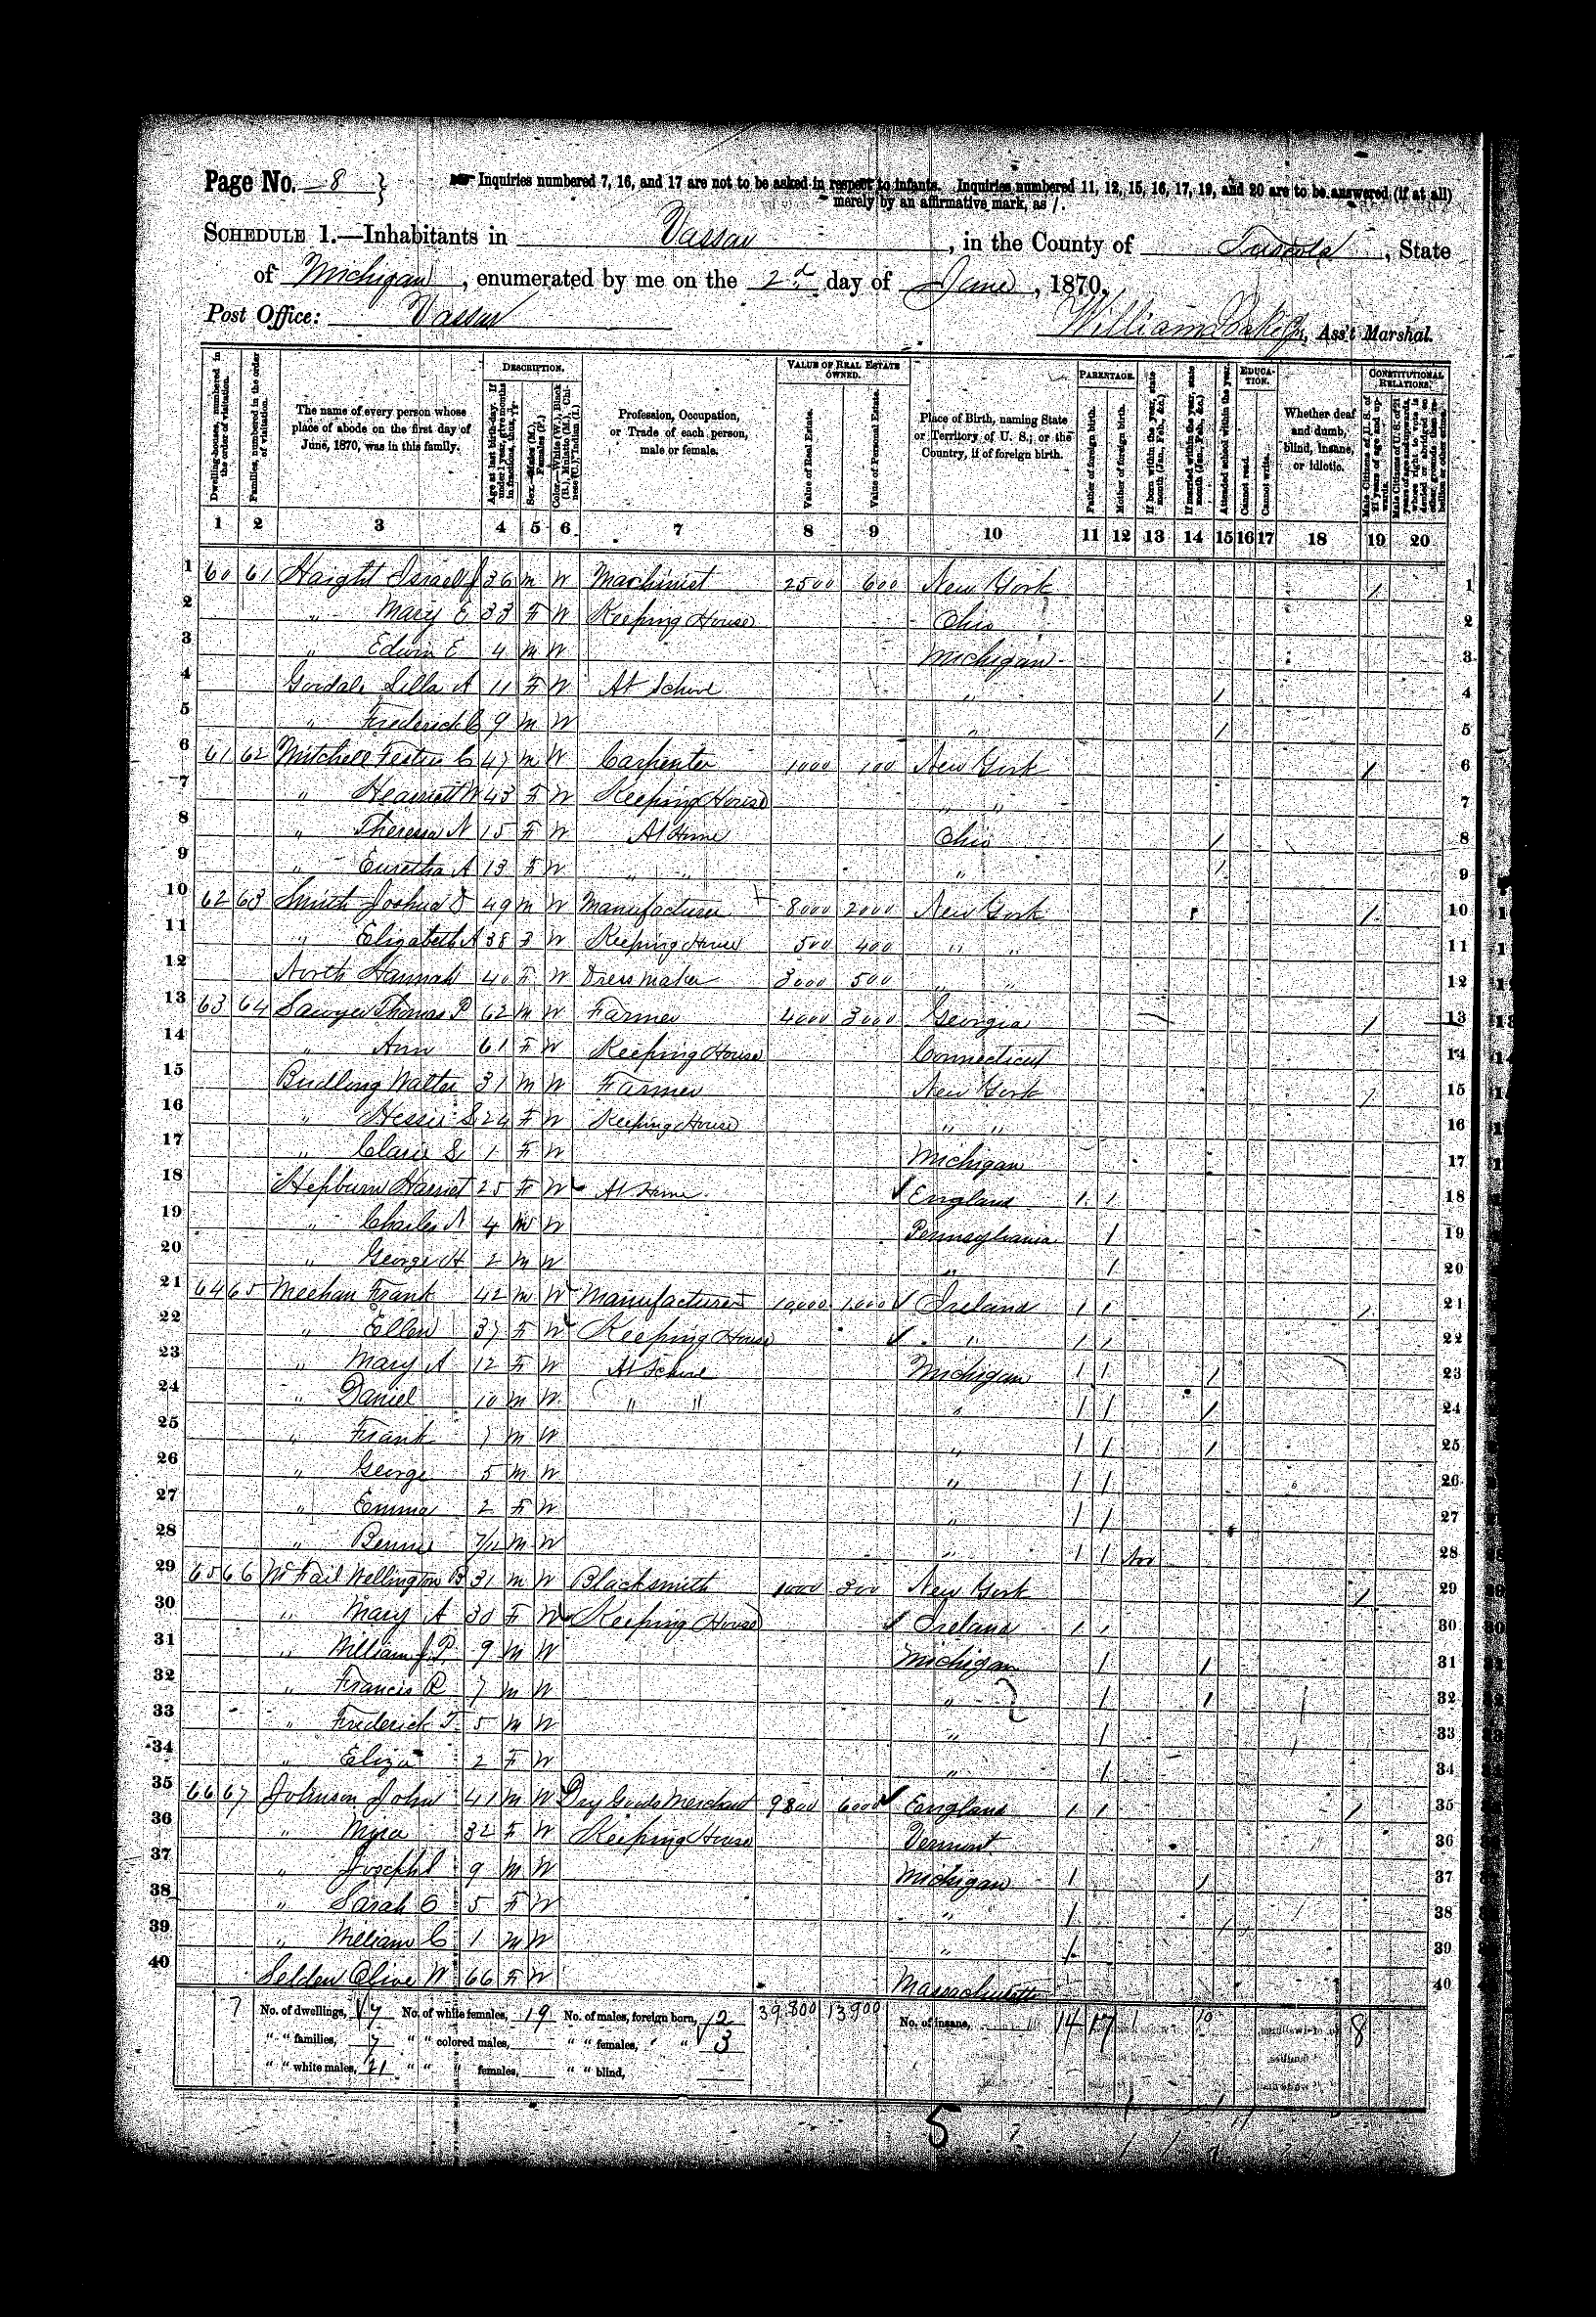 Page No. 8 }
Inquiries numbered 7, 16, and 17 are not to be asked in respect to infants. Inquiries numbered 11, 12, 15, 16, 17, 19, and 20 are to be answered (if at all)
merely by an affirmative mark, as /.
SCHEDULE 1.—Inhabitants in Vassar, in the County of Tuscola, State
of Michigan, enumerated by me on the 2d day of June, 1870.
Post Office: Vassar
William, Ass't Marshal.
Dwelling-houses, numbered in the order of visitation.
Families, numbered in the order of visitation.
The name of every person whose place of abode on the first day of June, 1870, was in this family.
DESCRIPTION.
Age at last birth-day. If under 1 year, give months in fractions, thus, 3/12
Sex.—Males (M.), Females (F.)
Color.—White (W.), Black (B.), Mulatto (M.), Chinese (C.), Indian (I.)
Profession, Occupation, or Trade of each person, male or female.
VALUE OF REAL ESTATE OWNED.
Value of Real Estate.
Value of Personal Estate.
Place of Birth, naming State or Territory of U. S.; or the Country, if of foreign birth.
PARENTAGE.
Father of foreign birth.
Mother of foreign birth.
If born within the year, state month (Jan., Feb., &c.)
If married within the year, state month (Jan., Feb., &c.)
Attended school within the year.
EDUCATION.
Cannot read.
Cannot write.
Whether deaf and dumb, blind, insane, or idiotic.
CONSTITUTIONAL RELATIONS.
Male Citizens of U. S. of 21 years of age and upwards.
Male Citizens of U. S. of 21 years of age and upwards, whose right to vote is denied or abridged on other grounds than rebellion or other crime.
1 2 3 4 5 6 7 8 9 10 11 12 13 14 15 16 17 18 19 20
1 60 61 Haight Israel J 36 m W Machinist 2500 600 New York / 1
2 " Mary E 33 F W Keeping House Ohio 2
3 " Edwin E 4 m W Michigan 3
4 Lilla A 11 F W At School " / 4
5 " Frederick C 9 m W " / 5
6 61 62 Mitchell Festus C 47 m W Carpenter 1000 100 New York / 6
7 " Harriett W 43 F W Keeping House " " 7
8 " Theressa N 15 F W At Home Ohio / 8
9 " Euretha A 13 F W " " " / 9
10 62 63 Smith Joshua D 49 m W Manufacturer 8000 2000 New York / 10
11 " Elizabeth A 38 F W Keeping House 500 400 " " 11
12 North Hannah 40 F W Dress maker 3000 500 " " 12
13 63 64 Sawyer Thomas P 62 m W Farmer 4000 3000 Georgia / 13
14 " Ann 61 F W Keeping House Connecticut 14
15 Budlong Walter 31 m W Farmer New York / 15
16 " Hessie S 24 F W Keeping House " " 16
17 " Clarie S 1 F W Michigan 17
18 Hepburn Harriet 25 F W At Home England / / 18
19 " Charles A 4 m W Pennsylvania / 19
20 " George H 2 m W " / 20
21 64 65 Meehan Frank 42 m W Manufacturer 10000 1000 Ireland / / / 21
22 " Ellen 37 F W Keeping House " / / 22
23 " Mary A 12 F W At School Michigan / / / 23
24 " Daniel 10 m W " " " / / / 24
25 " Frank 7 m W " / / / 25
26 " George 5 m W " / / 26
27 " Emma 2 F W " / / 27
28 " Bennie 7/12 m W " / / Nov 28
29 65 66 McFail Wellington B 31 m W Blacksmith 1000 300 New York / 29
30 " Mary A 30 F W Keeping House Ireland / / 30
31 " William J. P 9 m W Michigan / / 31
32 " Francis R 7 m W " / / 32
33 " Frederick T. 5 m W " / 33
34 " Eliza 2 F W " / 34
35 66 67 Johnson John 41 m W Dry Goods Merchant 9800 6000 England / / / 35
36 " Myra 32 F W Keeping House Vermont 36
37 " Joseph L 9 m W Michigan / / 37
38 " Sarah O 5 F W " / 38
39 " William C 1 m W " / 39
40 Selden Olive W 66 F W Massachusetts 40
7 No. of dwellings, 7 No. of white females, 19 No. of males, foreign born, 2 39,800 13,900 No. of insane, 14 17 1 10 8
" " families, 7 " " colored males, " " females, " " 3
" " white males, 21 " " " females, " " blind,
5